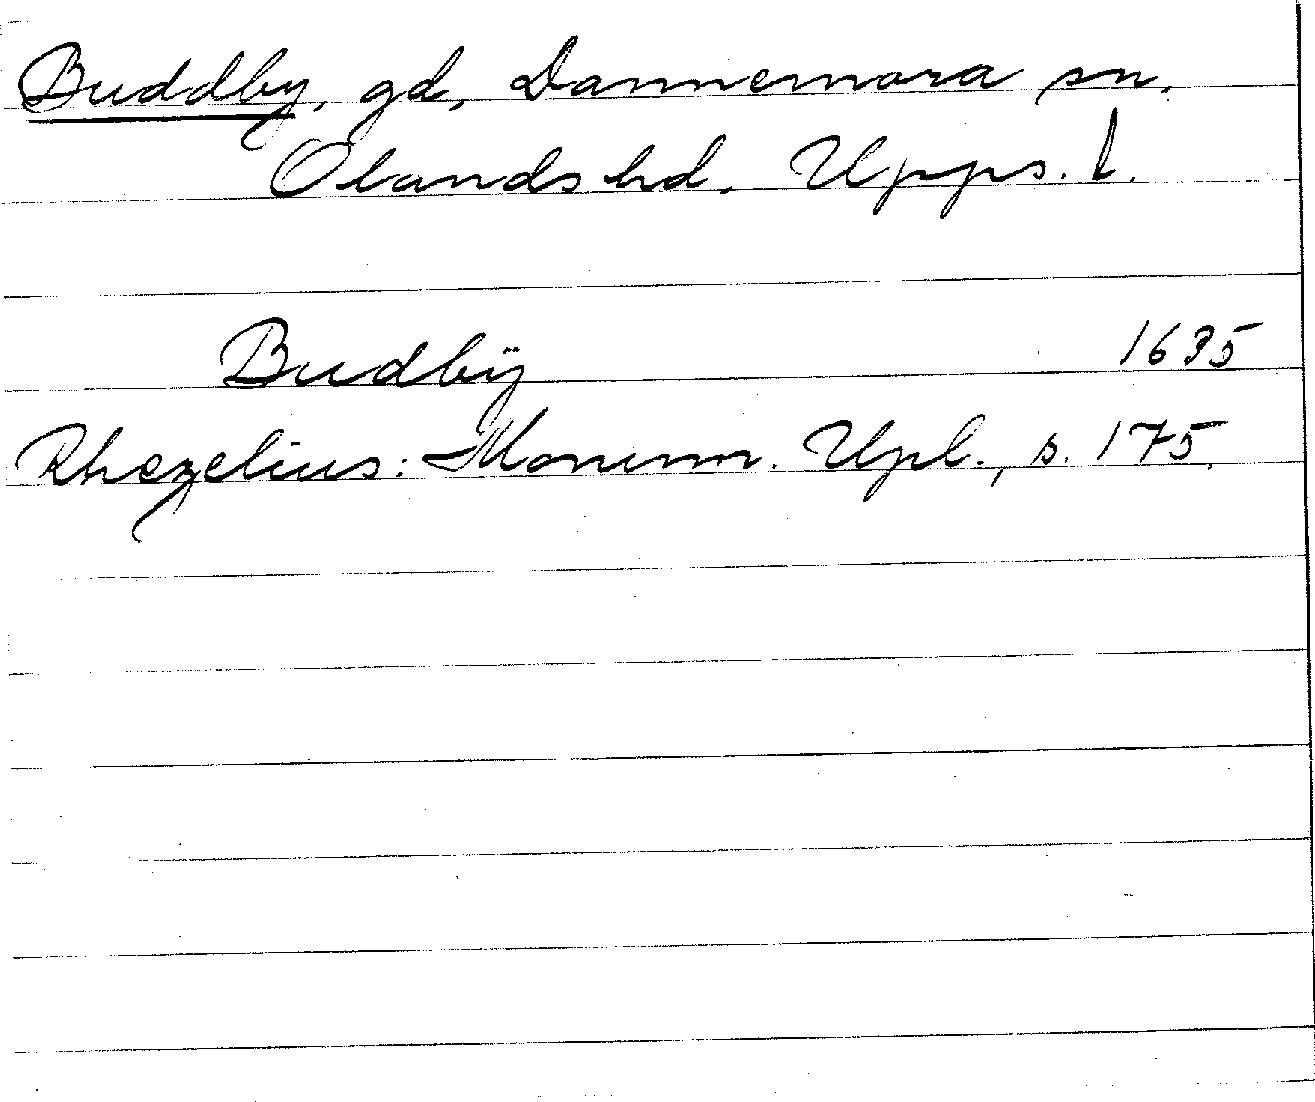 Buddby, gd, Dannemora sn.
Olands hd. Upps. l.
Budbÿ 1635
Rhezelius: Monum. Upl., s. 175.